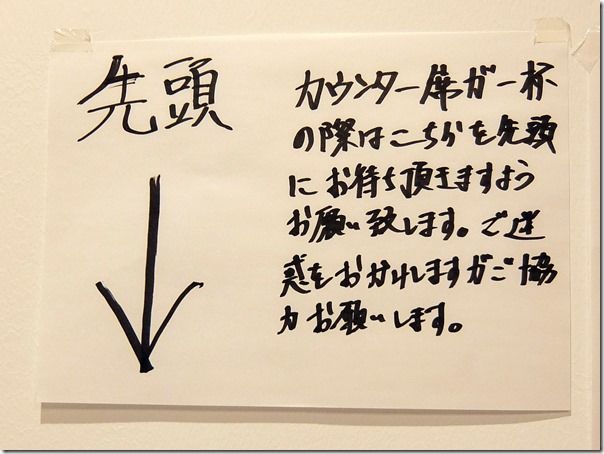 先頭
カウンター席が一杯
の際はこちらを先頭
にお待ち頂きますよう
お願い致します。ご迷
惑をおかけしますがご協
力お願いします。